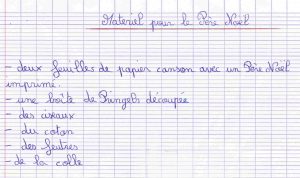 Materiel pour le Père Noël
- deux feuilles de papier canson avec un Père Noël
imprimé.
- une boîte de Pringels découpée
- des ciseaux
- du coton
- des feutres
- de la colle